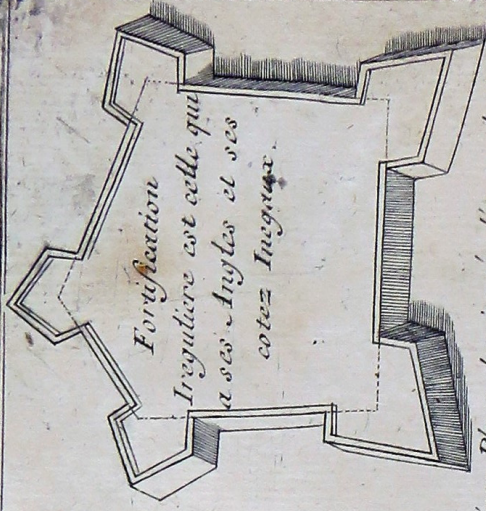 Fortification
Ireguliere est celle qui
a ses Angles et ses
cotez Inegaux.